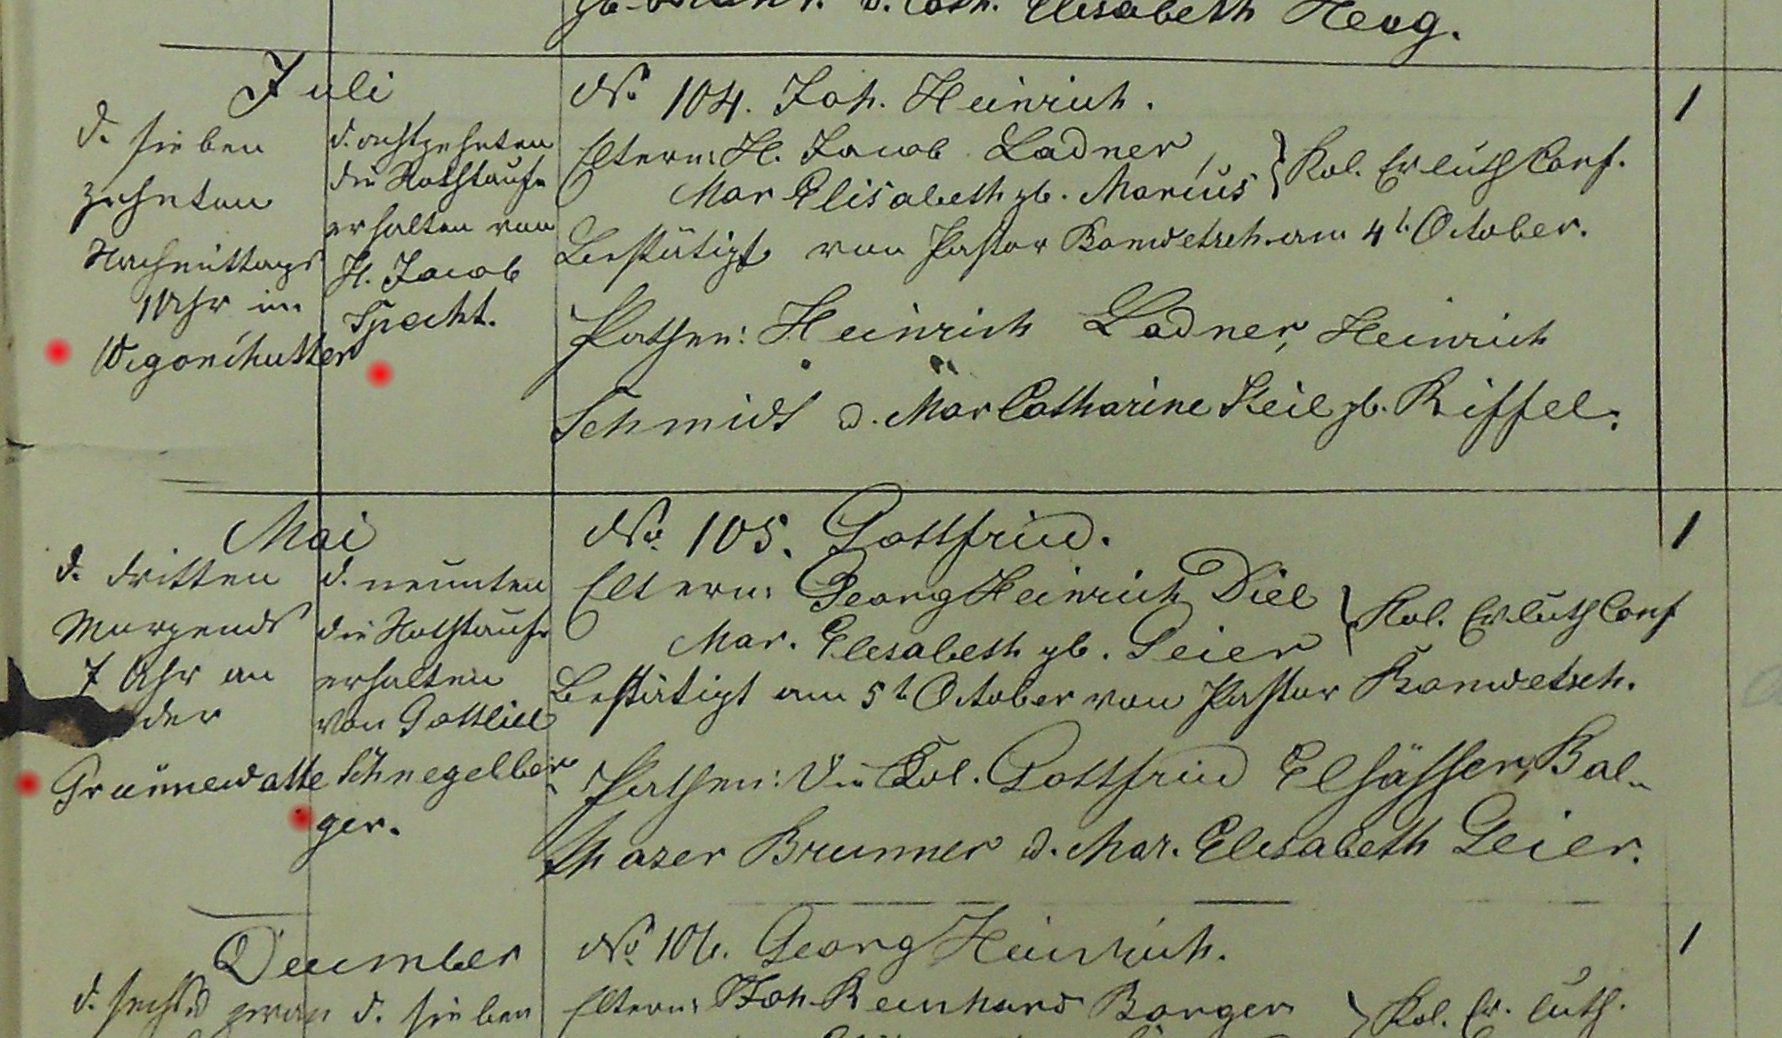 gb. d. Cath. Elisabeth Herg.
Juli
d. sieben
zehnten
Nachmittags
1 Uhr in
Wigonihutter
d. achtzehnten
die Nothtaufe
erhalten von
H. Jacob
Specht.
No. 104. Joh. Heinrich.
Eltern: H. Jacob Ladner,
Mar Elisabeth gb. Marius } Kol. Ev luth Conf.
Bestätigt von Pastor Bonwetsch am 4t. October.
Pathen: Heinrich Ladner, Heinrich
Schmidt u. Mar Catharine Keil gb. Riffel.
1
Mai
d. dritten
Morgends
7 Uhr an
der
Graünewatte
d. neunten
die Nothtaufe
erhalten
von Gottlieb
Schnegelber
ger.
No. 105. Gottfried.
Eltern: Georg Heinrich Diel
Mar. Elisabeth gb. Geier } Kol. Ev luth Conf
Bestätigt am 5t. October von Pastor Bonwetsch.
Pathen: Die Kol. Gottfried Elsässer, Bal-
thaser Brunner u. Mar. Elisabeth Geier.
1
December
d. sechs u zwan
d. sieben
No. 106. Georg Heinrich.
Eltern: Joh. Reinhard Borger } Kol. Ev. luth.
1